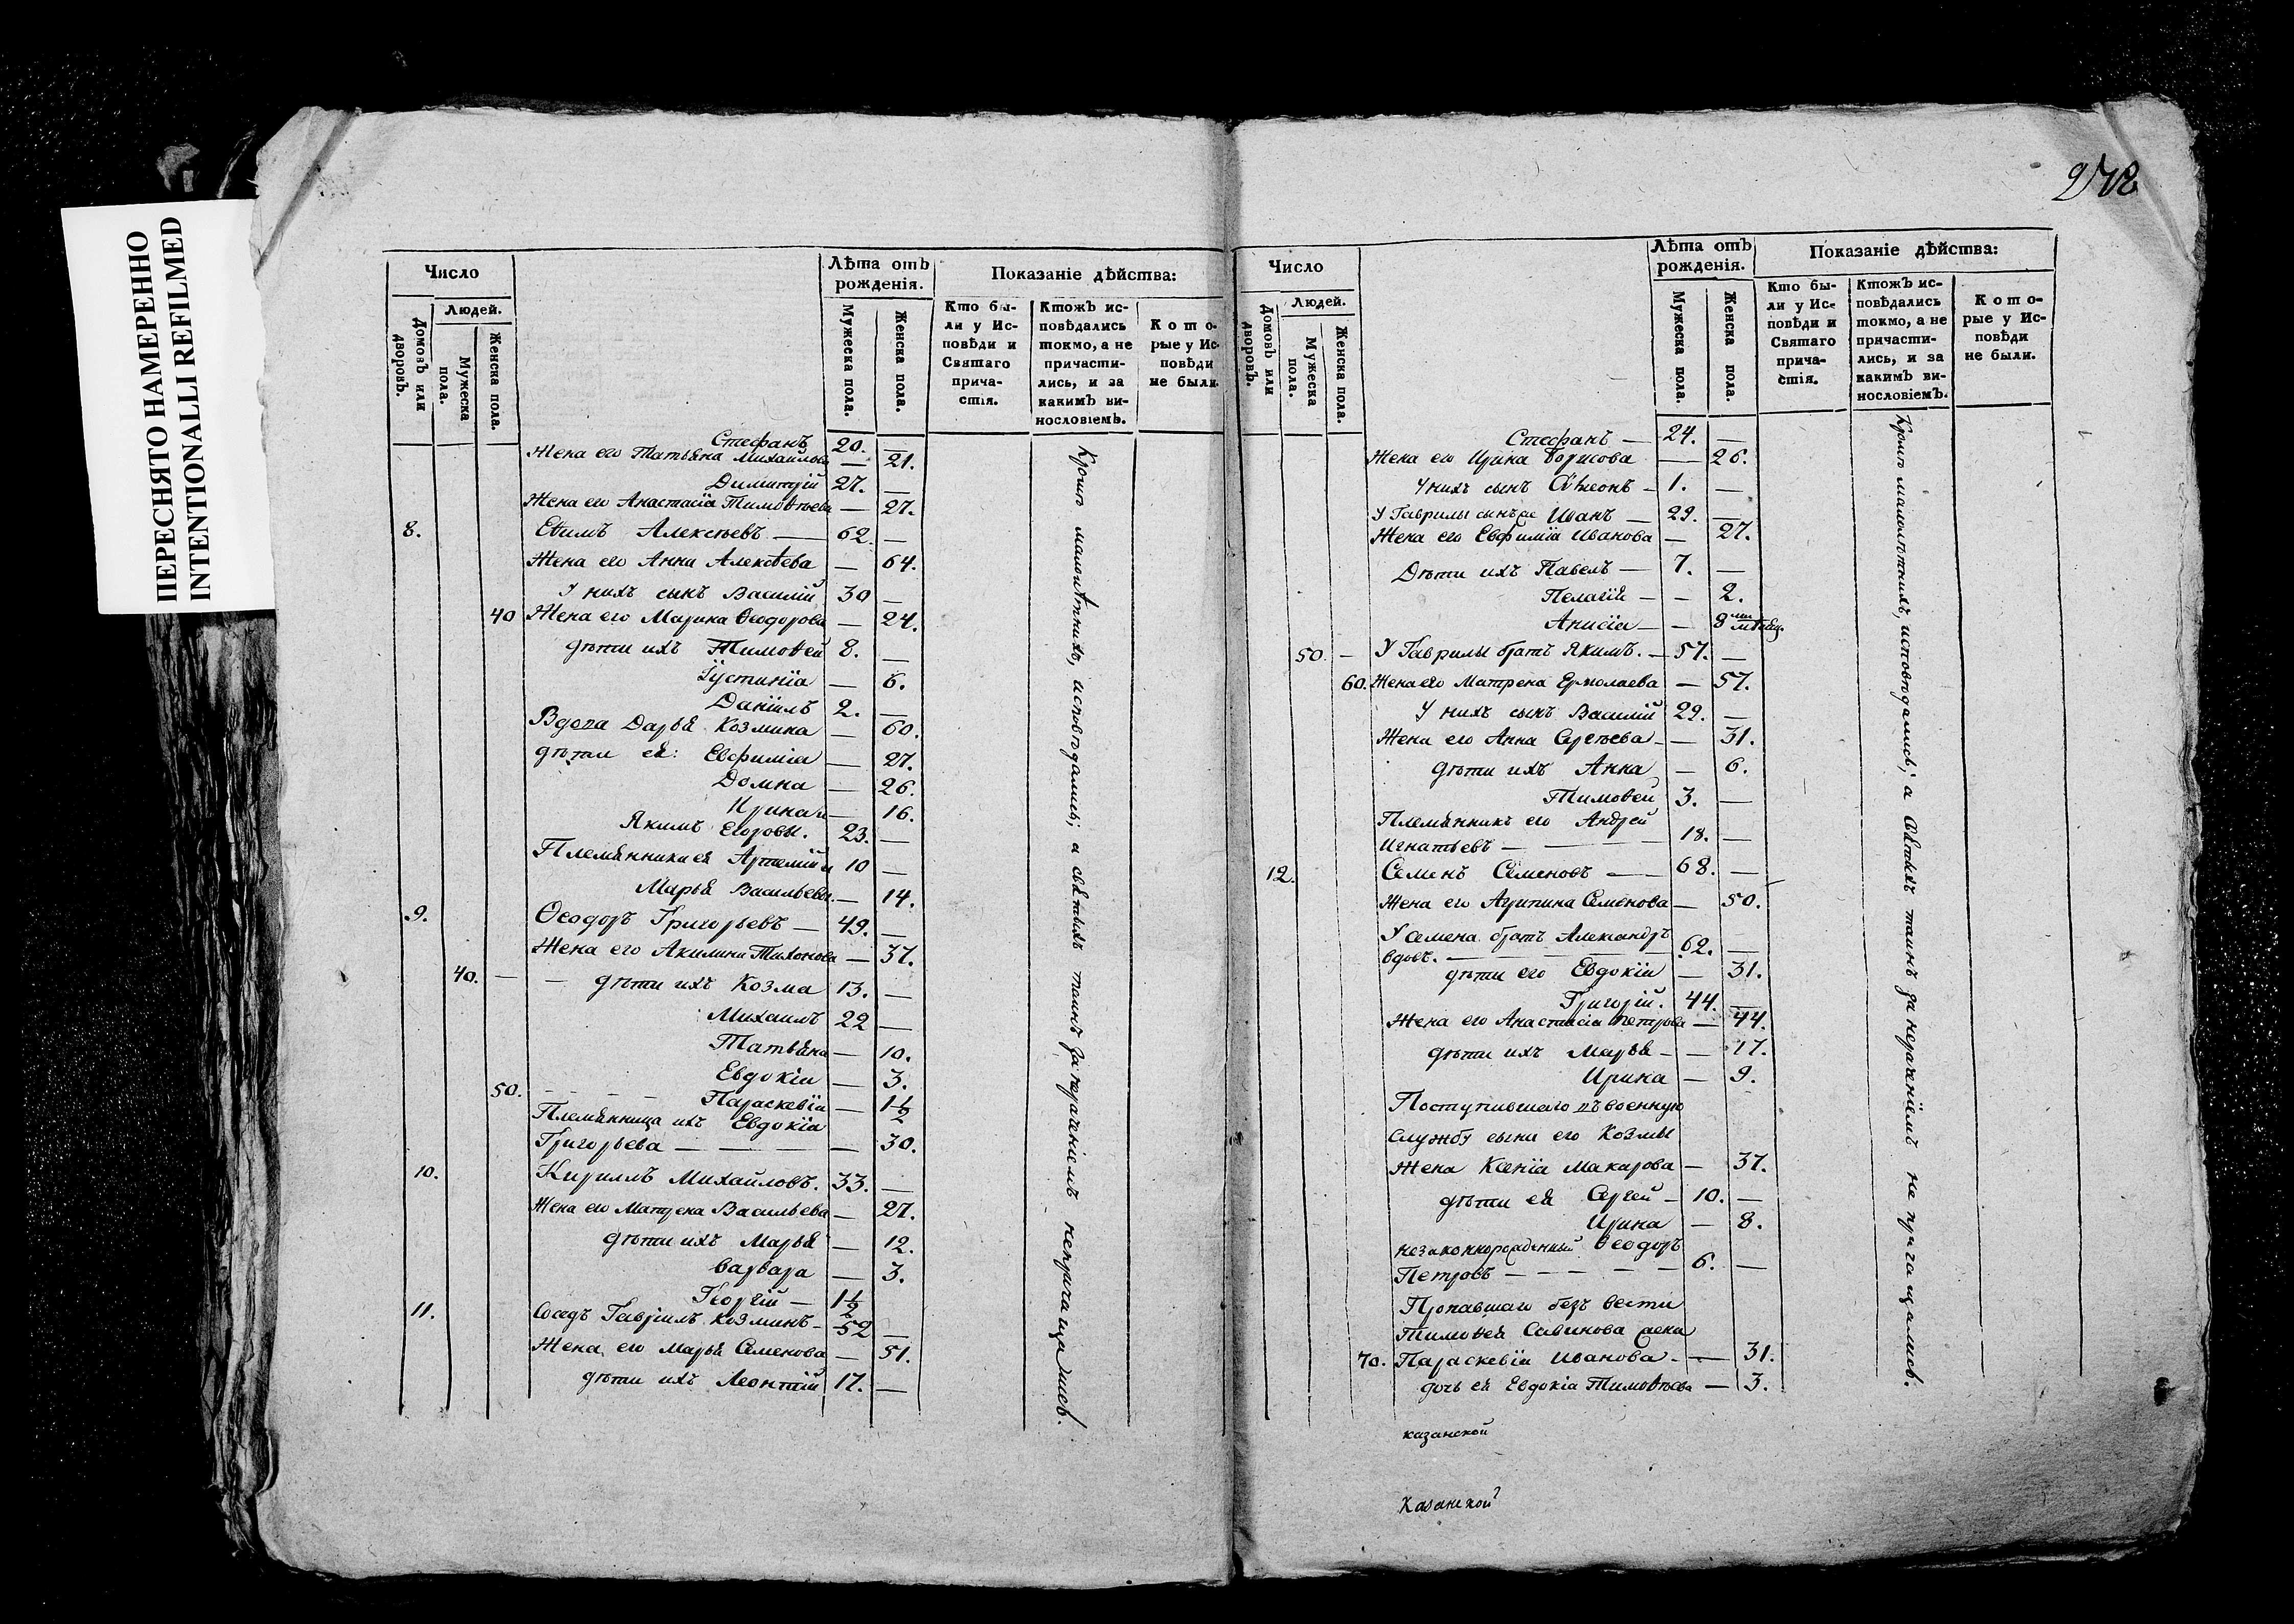 ПЕРЕСНЯТО НАМЕРЕННО
INTENTIONALLI REFILMED
Число
Лѣта отъ рожденія.
Показаніе дѣйства:
Домовъ или дворовъ.
Людей.
Мужеска пола.
Женска пола.
Мужеска пола.
Женска пола.
Кто бы-
ли у Ис-
повѣди и
Святаго
прича-
стія.
Ктожъ ис-
повѣдались
токмо, а не
причасти-
лись, и за
какимъ ви-
нословіемъ.
Кото-
рые у Ис-
повѣди
не были.
Стефанъ 20. —
Жена его Татьяна Михайлова — 21.
Димитрій 27. —
Жена его Анастасіа Тимоѳѣева — 27.
8. Еѳимъ Алексѣевъ — 62. —
Жена его Анна Алексѣева — 64.
У нихъ сынъ Василій 30 —
40 Жена его Марина Ѳеодорова — 24.
дѣти ихъ Тимоѳей 8. —
Іустиніа — 6.
Даніилъ 2. —
Вдова Дарья Козмина — 60.
дѣти ея: Евфиміа — 27.
Домна — 26.
Ирина и — 16.
Якимъ Егоровы. 23. —
Племянники ея Артемій и 10 —
Марья Васильевы. — 14.
9. Ѳеодоръ Григорьевъ — 49. —
Жена его Акилина Тихонова — 37.
40. — — дѣти ихъ Козма 13. —
Михаилъ 22 —
Татьяна — 10.
Евдокіа — 3.
50. — — — Параскевіа — 1½
Племянница ихъ Евдокіа
Григорьева — — — 30.
10. Кириллъ Михайловъ. 33. —
Жена его Матрена Васильева — 27.
дѣти ихъ Марья — 12.
Варвара — 3.
Георгій — 1½
11. Сосѣдъ Гавріилъ Козминъ — 52 —
Жена его Марья Семенова — 51.
дѣти ихъ Леонтій 17. —
Кромѣ малолѣтнихъ, исповѣдались; а святыхъ таинъ за нераченіемъ непричащались.
278
Число
Лѣта отъ рожденія.
Показаніе дѣйства:
Домовъ или дворовъ.
Людей.
Мужеска пола.
Женска пола.
Мужеска пола.
Женска пола.
Кто бы-
ли у Ис-
повѣди и
Святаго
прича-
стія.
Ктожъ ис-
повѣдались
токмо, а не
причасти-
лись, и за
какимъ ви-
нословіемъ.
Кото-
рые у Ис-
повѣди
не были.
Стефанъ — 24. —
Жена его Ирина Борисова — 26.
У нихъ сынъ Сѵмеонъ — 1. —
У Гаврилы сынъ Иванъ — 29. —
Жена его Евфиміа Иванова — 27.
Дѣти ихъ Павелъ — 7. —
Пелагіа — — 2.
Анисіа — — 8 мѣсяц.
50. — У Гаврилы братъ Якимъ. — 57. —
60. Жена его Матрена Ермолаева — 57.
У нихъ сынъ Василій 29. —
Жена его Анна Сергѣева — — 31.
дѣти ихъ Анна — 6.
Тимоѳей 3. —
Племянникъ его Андрей
Игнатьевъ — — 18. —
12. Семенъ Семеновъ — 68. —
Жена его Агрипина Семенова — 50.
У Семена братъ Александръ
вдовъ. — 62. —
дѣти его Евдокіа — 31.
Григорій. 44. —
Жена его Анастасіа Петрова — 44.
дѣти ихъ Марья — — 17.
Ирина — 9.
Поступившаго въ военную
службу сына его Козмы
Жена Ксеніа Макарова — 37.
дѣти ея Сергей — 10. —
Ирина — 8.
незаконнорожденный Ѳеодоръ
Петровъ — — — — — 6. —
Пропавшаго безъ вести
Тимоѳея Савинова жена
70. Параскевіа Иванова — — 31.
дочь ея Евдокіа Тимоѳѣева — 3.
Кромѣ малолѣтнихъ, исповѣдались; а святыхъ таинъ за нераченіемъ не причащались.
казанской
Казанской